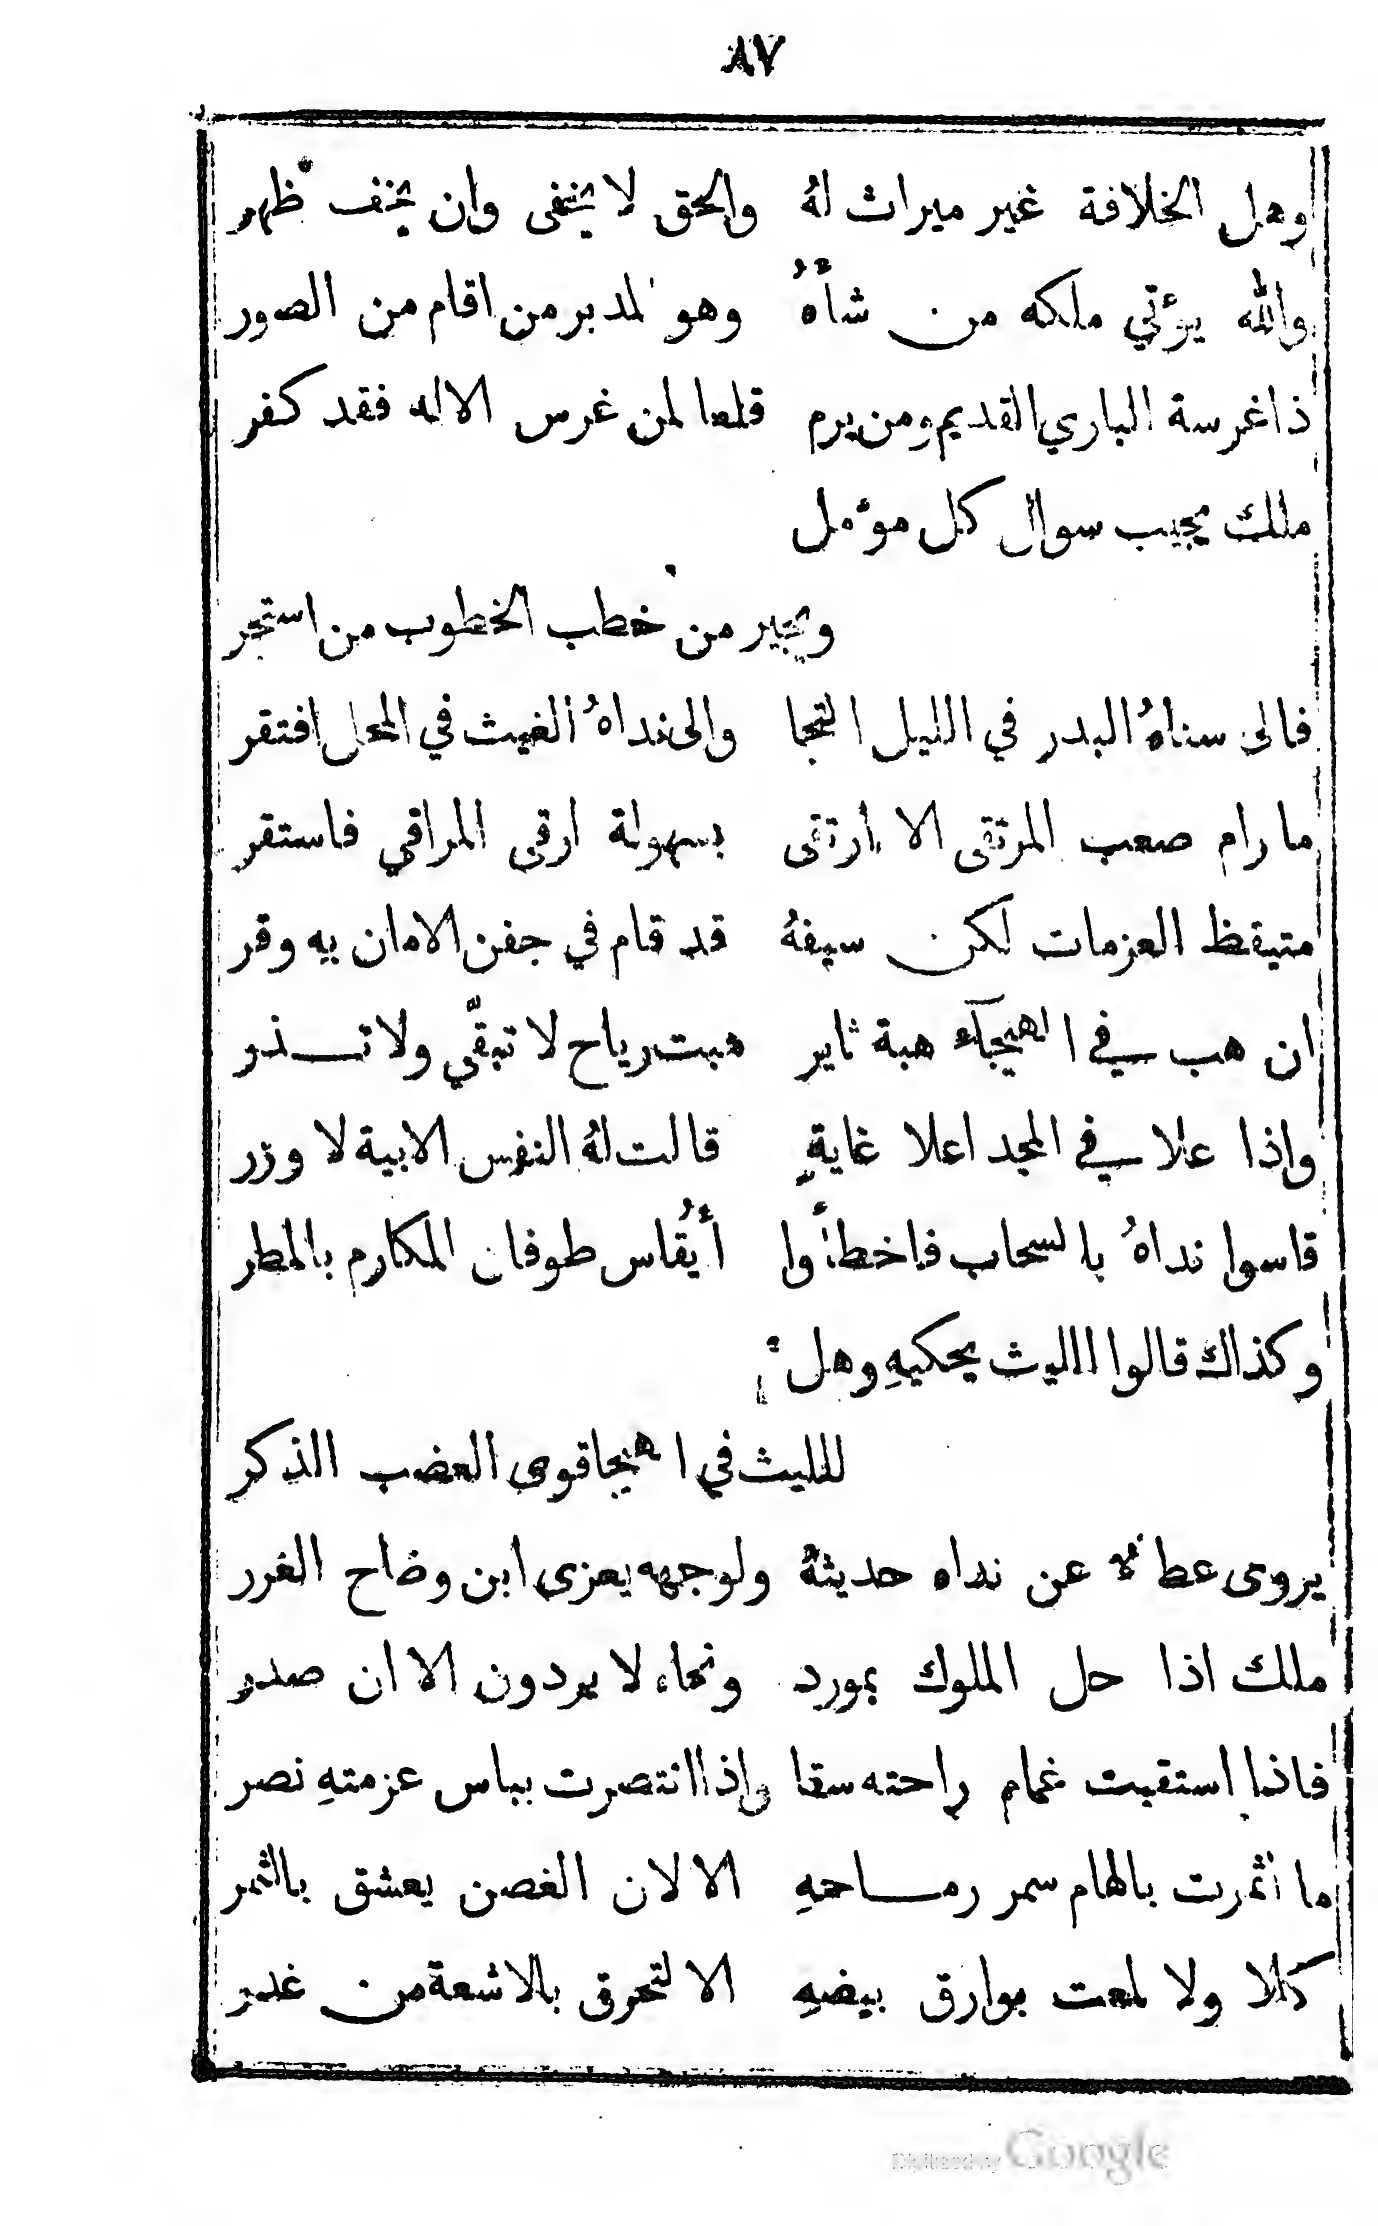 ٨٧
وهل الخلافة غير ميراث لهُ والحق لا يختفى وان يخف ظهر
والله يؤتي ملكه من شأهُ وهو المدبر من اقام من الصور
ذا غرسة الباري القديم ومن يرم قلعا لمن غرس الاله فقد كفر
ملك يجيب سوال كل مؤمل
ويجير من خطب الخطوب من استجر
فالى سناهُ البدر في الليل التجا والى نداهُ الغيث في المحل افتقر
ما رام صعب المرتقى الا ارتقى بسهولة ارقى المراقي فاستقر
متيقظ العزمات لكن سيفهُ قد قام في جفن الامان بهِ وقر
ان هب في الهيجآء هبة ثاير هبت رياح لا تبقّي ولا تـــذر
واذا علا في المجد اعلا غايةٍ قالت لهُ النفس الابية لا وزر
قاسوا نداهُ بالسحاب فاخطأوا أيُقاس طوفان المكارم بالمطر
وكذاك قالوا الليث يحكيهِ وهل
لليث في الهيجا قوى العضب الذكر
يروى عطائه عن نداه حديثهُ ولوجهه يعزى ابن وضاح الغرر
ملك اذا حل الملوك بمورد ونحاء لا يردون الا ان صدر
فاذا استقيت غمام راحته سقا واذا انتصرت بباس عزمتهِ نصر
ما اثمرت بالهام سمر رمـــاحهِ الا لان الغصن يعشق بالثمر
كلا ولا لمعت بوارق بيضهِ الا لتحرق بالاشعة من غدر
Digitized by Google